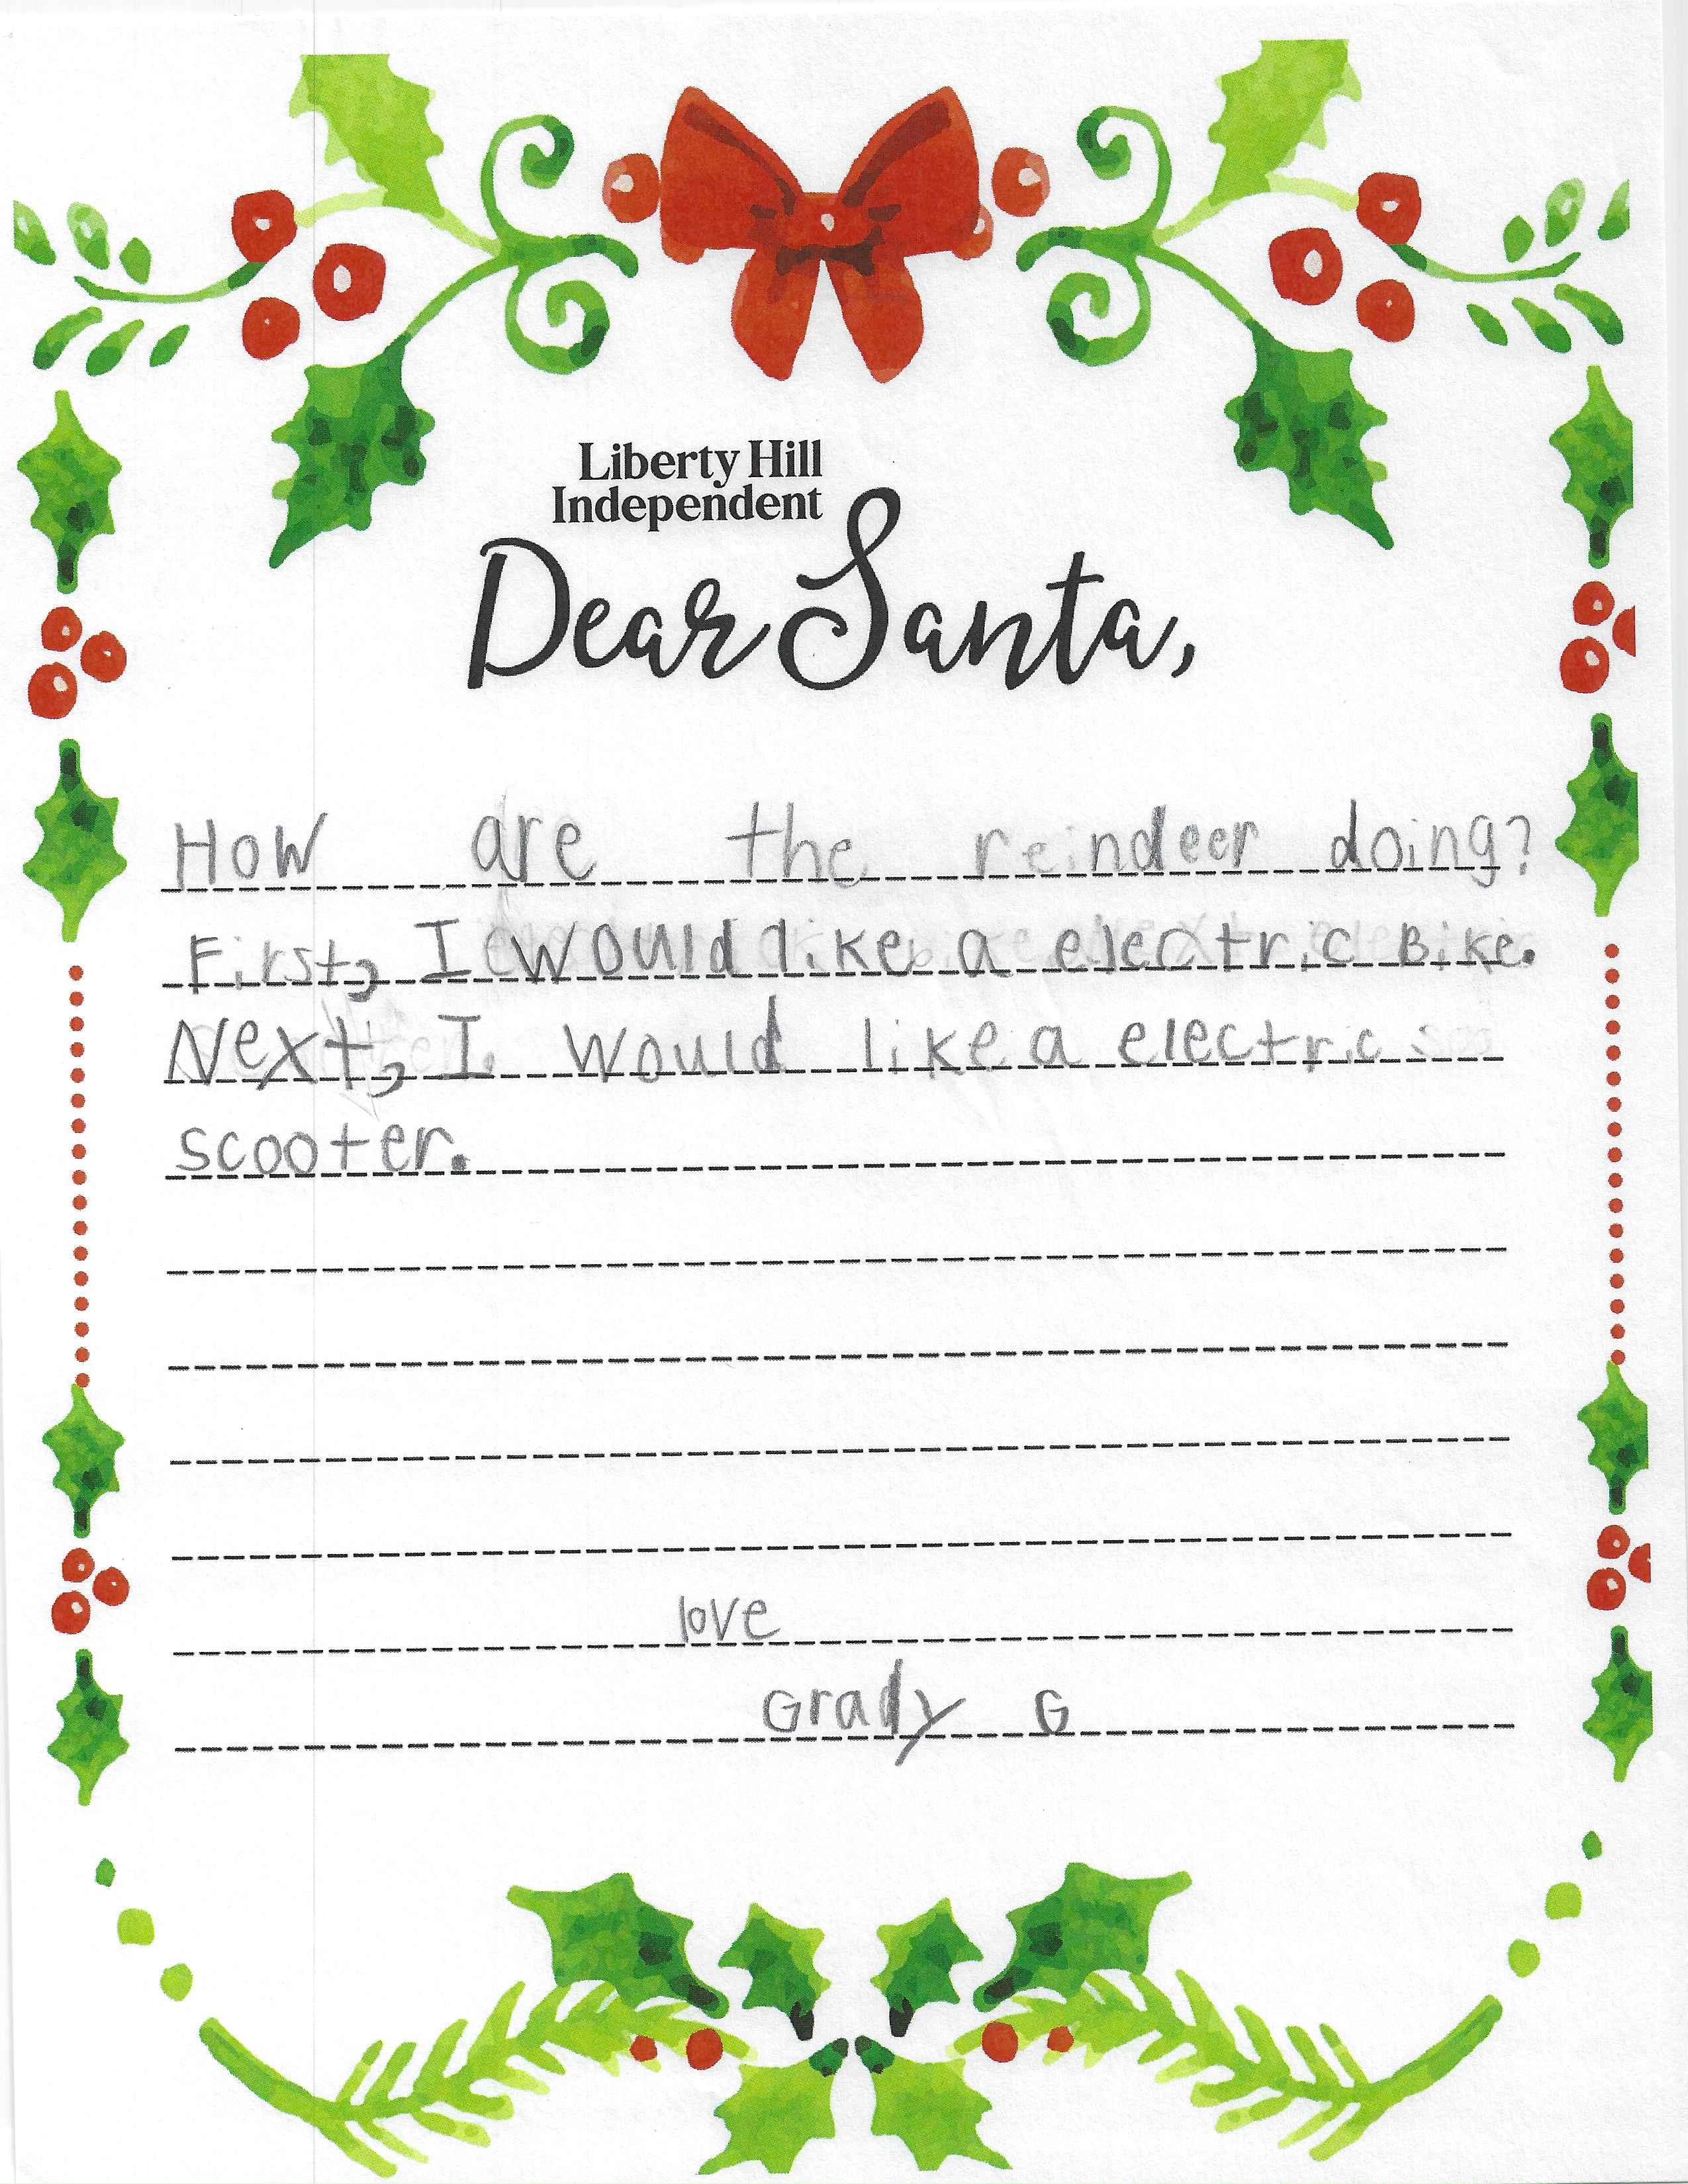 Liberty Hill
Independent
Dear Santa,
How are the reindeer doing?
First, I would like a electric Bike.
Next, I would like a electric
scooter.
love
Grady G